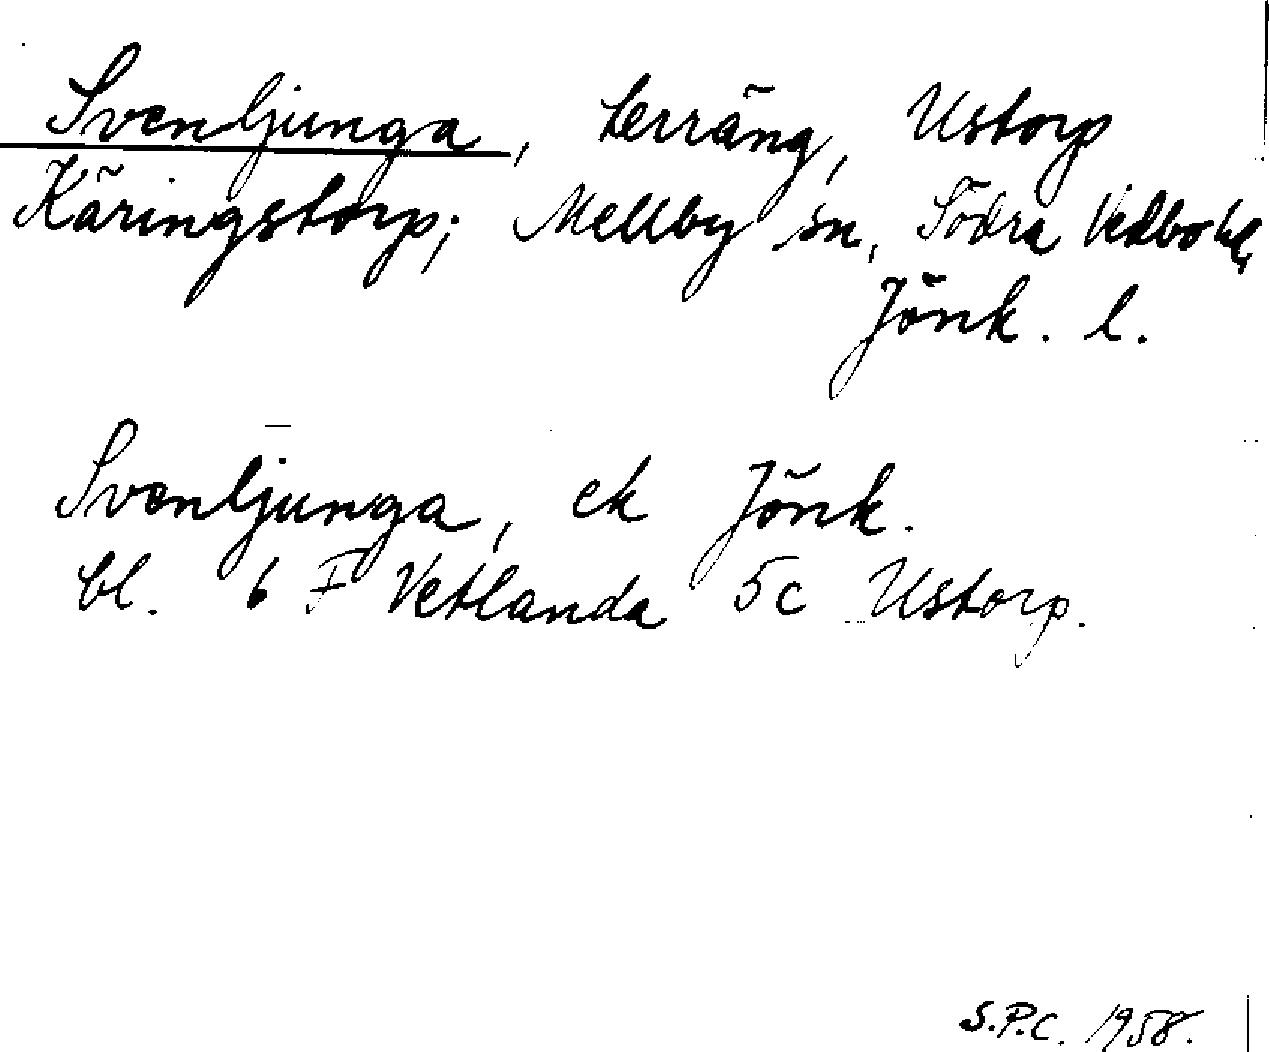 Svenljunga, terräng, Ustorp
Käringstorp; Mellby sn, Södra Vedbo hd,
Jönk. l.
Svenljunga, ek Jönk.
bl. 6 F Vetlanda 5c Ustorp.
S.P.C. 1958.